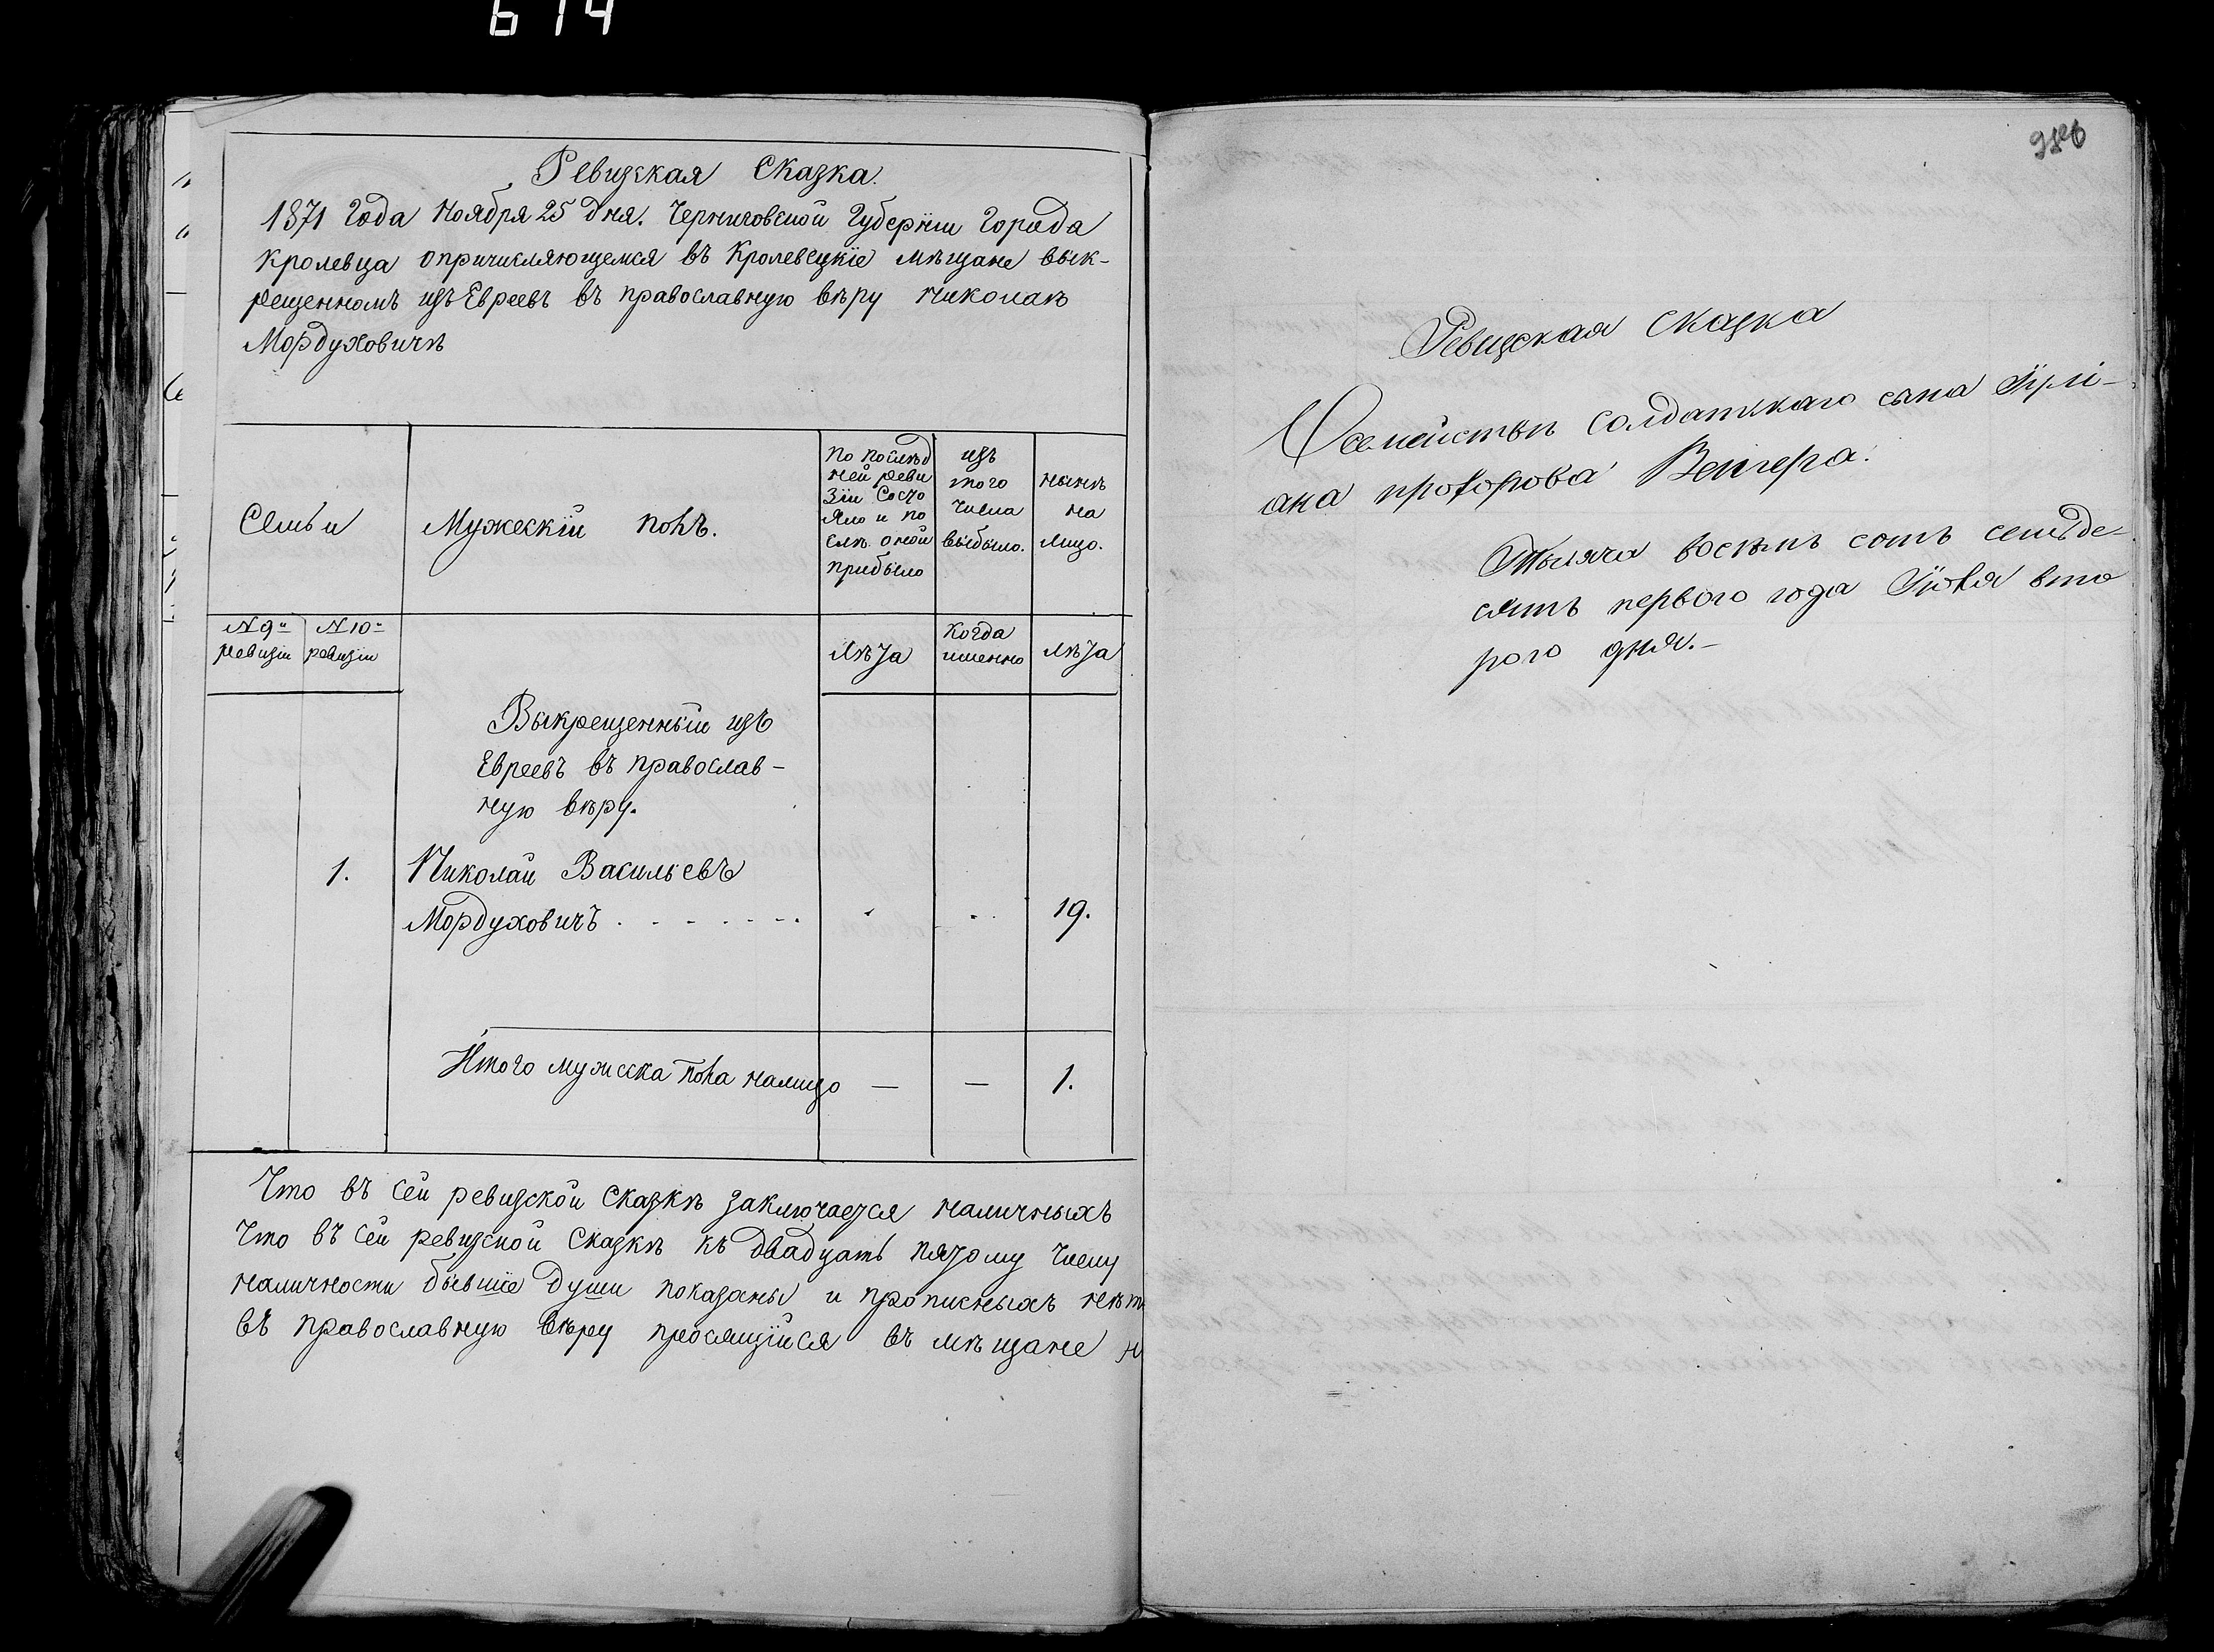 614
Ревизская Сказка.
1871 Года Ноября 25 дня. Черниговской Губерніи Города
Кролевца опричисляющемся въ Кролевецкіе мѣщане вык-
рещенномъ изъ Евреевъ въ православную вѣру Николаѣ
Мордуховичѣ
Семьи
Мужескій полъ.
по послѣд
ней реви
зіи Состо
яло и по
слѣ оной
прибыло
изъ
того
числа
выбыло.
нынѣ
на
лицо.
№ 9й
ревизіи
№ 10й
ревизіи
Лѣта
Когда
именно
Лѣта
Выкрещенный изъ
Евреевъ въ православ-
ную вѣру.
1. Николай Васильевъ
Мордуховичъ . . . . . . . 19.
Итого мужеска пола налицо — — 1.
Что въ сей ревизской Сказкѣ заключается наличныхъ
Что въ сей ревизской Сказкѣ къ двадцать пятому числу
наличности бывшіе души показаны и прописныхъ нѣтъ
въ православную вѣру просящійся въ мѣщане
986
Ревизская Сказка
О семействѣ солдатскаго сына Юлі-
ана прохорова Венгера.
Тысяча восемь сотъ семьде-
сятъ первого года Іюля вто
рого дня.—